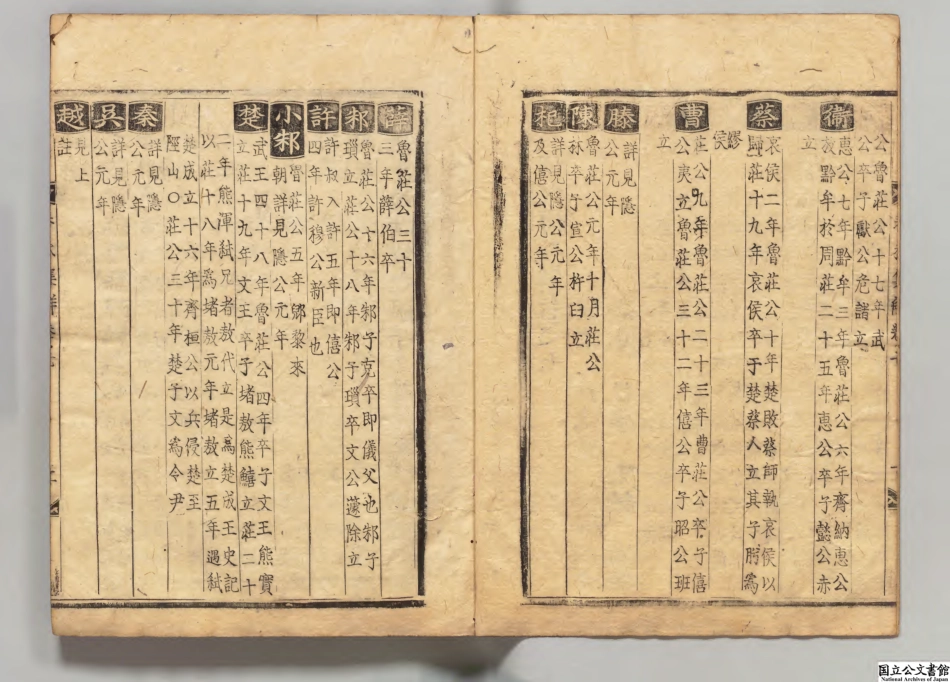 公魯莊公十七年武
公卒子獻公危諸立
衞
惠公七年黔牟三年魯莊公六年齊納惠公
放黔牟於周莊二十五年惠公卒子懿公赤
立
蔡
哀侯二年魯莊公十年楚敗蔡師執哀侯以
歸莊十九年哀侯卒于楚蔡人立其子肹爲
繆侯
曹
莊公九年魯莊公二十三年曹莊公卒子僖
公夷立魯莊公三十二年僖公卒子昭公班
立
滕
詳見隱
公元年
陳
魯莊公元年十月莊公
林卒子宣公杵臼立
杞
詳見隱公元年
及僖公元年
薛
魯莊公三十
三年薛伯卒
邾
魯莊公十六年邾子克卒即儀父也邾子
瑣立莊公十八年邾子瑣卒文公蘧除立
許
許叔入許五年即僖公
四年許穆公新臣也
小邾
魯莊公五年郳黎來
朝詳見隱公元年
楚
武王四十八年魯莊公四年卒子文王熊實
立莊十九年文王卒子堵敖熊立莊二十
二年熊渾弑兄者敖代立是爲楚成王史記
以莊十八年爲堵敖元年堵敖立五年遇弑
楚成立十六年齊桓公以兵侵楚至
陘山〇莊公三十年楚子文爲令尹
秦
詳見隱
公元年
吳
詳見隱
公元年
越
見上
註
国立公文書館
National Archives of Japan